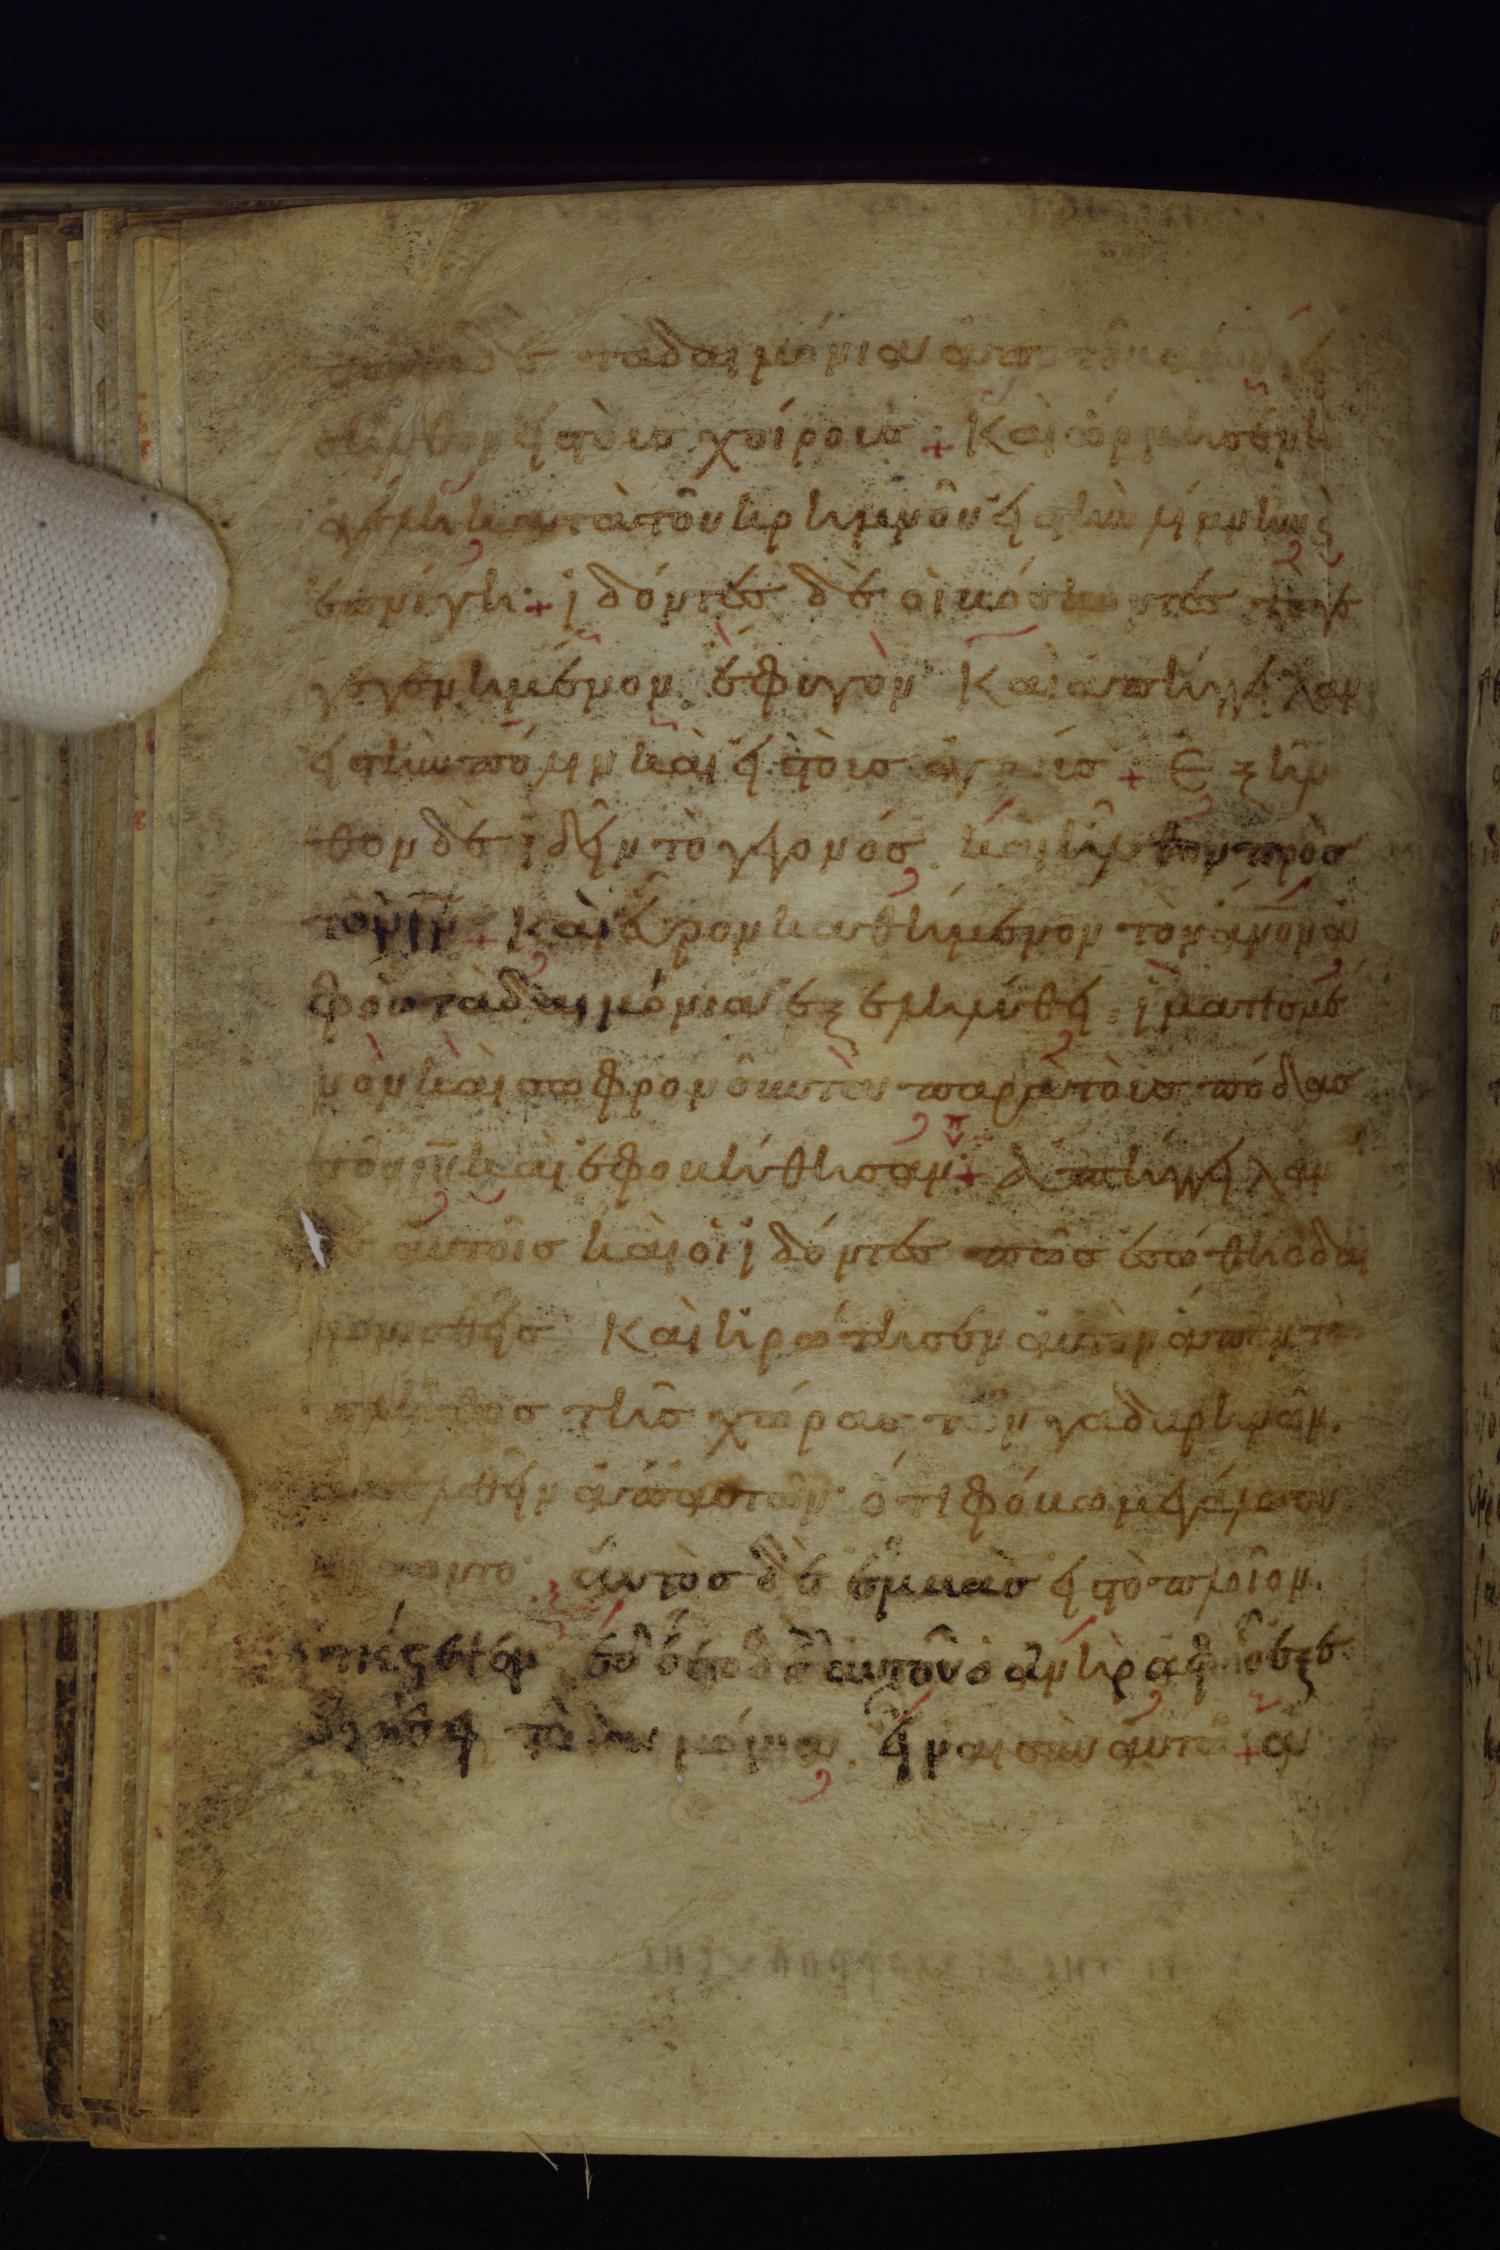 δὲ τὰ δαιμόνια ἀπὸ τοῦ ἀνου εἰ
σῆλθον εἰς τοὺς χοίρους + Καὶ ὥρμησεν ἡ
ἀγέλη κατὰ τοῦ κρημνοῦ εἰς τὴν λίμνην ὲ
ἐπνίγη + ἰδόντες δὲ οἱ βόσκοντες τὸ γε
γεγενημένον. ἔφυγον· Καὶ ἀπήγγειλαν
εἰς τὴν πόλιν καὶ εἰς τοὺς ἀγρούς + Ἐξῆλ
θον δὲ ἰδεῖν τὸ γεγονός. καὶ ἦλθον πρὸς
τὸν ιν + Καὶ εὗρον καθήμενον τὸν ἄνον ἀφ
οὗ τὰ δαιμόνια ἐξεληλύθει. ἱματισμέ
νον καὶ σωφρονοῦντα παρὰ τοὺς πόδας
τοῦ ιυ καὶ ἐφοβήθησαν + Ἀπήγγειλαν
δὲ αὐτοῖς καὶ οἱ ἰδόντες πῶς ἐσώθη ὁ δαι
μονισθείς· Καὶ ἠρώτησεν αὐτὸν ἅπαν τὸ
πλῆθος τῆς χώρας τῶν γαδαρηνῶν.
ἀπελθεῖν ἀπ' αὐτῶν· ὅτι φόβω μεγάλω συ
νείχοντο· αὐτὸς δὲ ἐμβὰς εἰς τὸ πλοῖον.
ὑπέστρεψεν ἐδέετο δὲ αὐτοῦ ὁ ἀνὴρ ἀφ' οὗ ἐξε
ληλύθει τὰ δαιμόνια. εἶναι σὺν αὐτῶ +